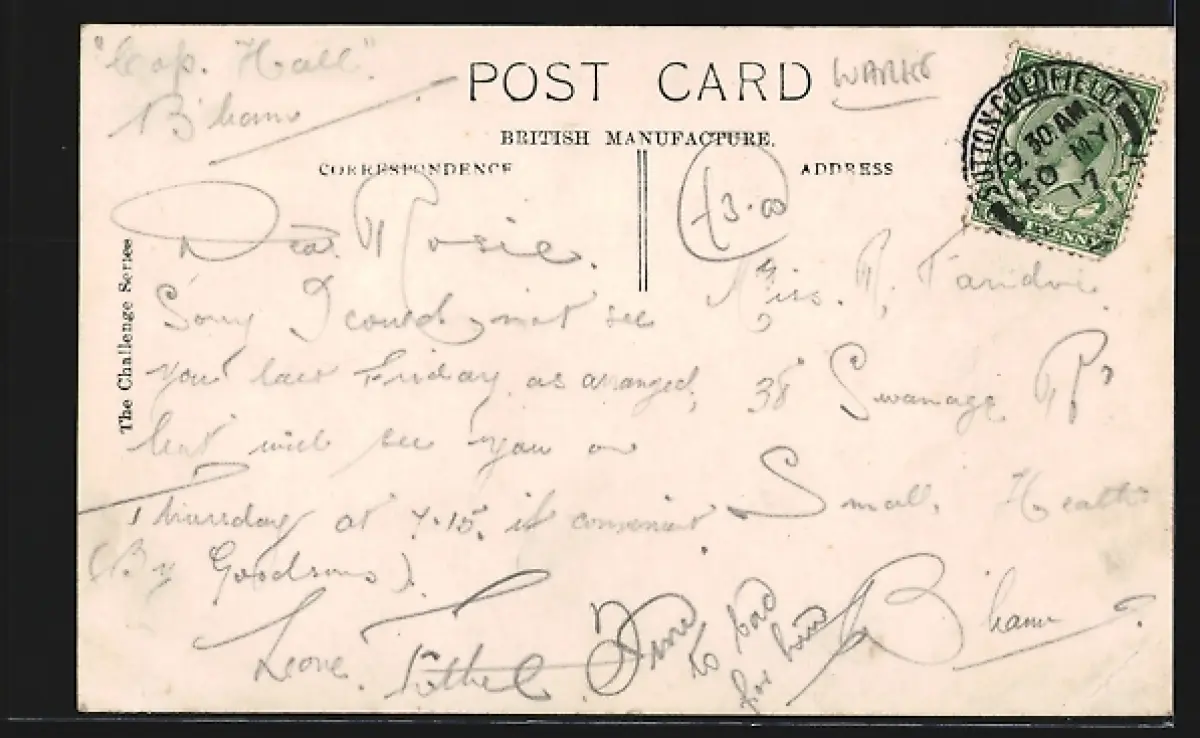 "Cop. Hall".
B'ham
POST CARD
WARKS
BRITISH MANUFACTURE.
CORRESPONDENCE
ADDRESS
The Challenge Series
SUTTON-COLDFIELD
9.30 AM
30 MY
17
£3.00
Dear Rosie.
Sorry I could not see
you last Friday as arranged,
but will see you on
Thursday at 7.15. if convenient.
(By Goodsons).
Love.
to bad
for
Miss. R.
38 Swanage Rd
Small. Heath
B'ham.